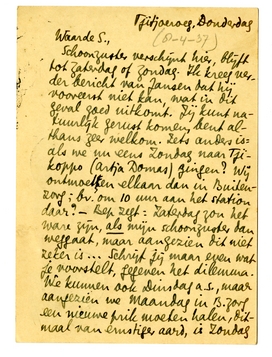 Tjitjoeroeg, Donderdag
(8-4-37)
Waarde S.,
Schoonzuster verschijnt hier, blijft
tot Zaterdag of Zondag. Ik kreeg ver
der bericht van Jansen dat hij
vooreerst niet kan, wat in dit
geval goed uitkomt. Jij kunt na-
tuurlijk gerust komen, bent al-
thans zeer welkom. Iets anders is:
als we nu eens Zondag naar Tji-
koppo (Artja Domas) gingen? Wij
ontmoeten elkaar dan in Buiten-
zorg: bv. om 10 uur aan het station
daar? — Bep zegt: Zaterdag zou het
ware zijn, als mijn schoonzuster dan
weggaat, maar aangezien dit niet
zeker is... Schrijf jij maar even wat
je voorstelt, gegeven het dilemma.
We kunnen ook Dinsdag a.s., maar
aangezien we Maandag in B.zorg
een nieuwe prik moeten halen, dit-
maal van ernstiger aard, is Zondag